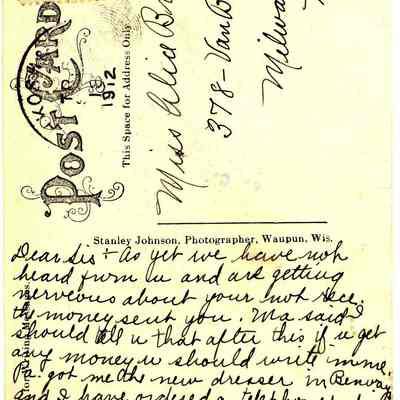 POST CARD
1912
This Space for Address Only
Miss Alid
378 - Van B
Milwa
Stanley Johnson, Photographer, Waupun, Wis.
Dear Sis - As yet we have not
heard from u and are getting
nervous about your not rece.
the money sent you. Ma said I
should tell u that after this if u get
any money u should write imme.
Pa got me the new dresser in
and I have ordered a